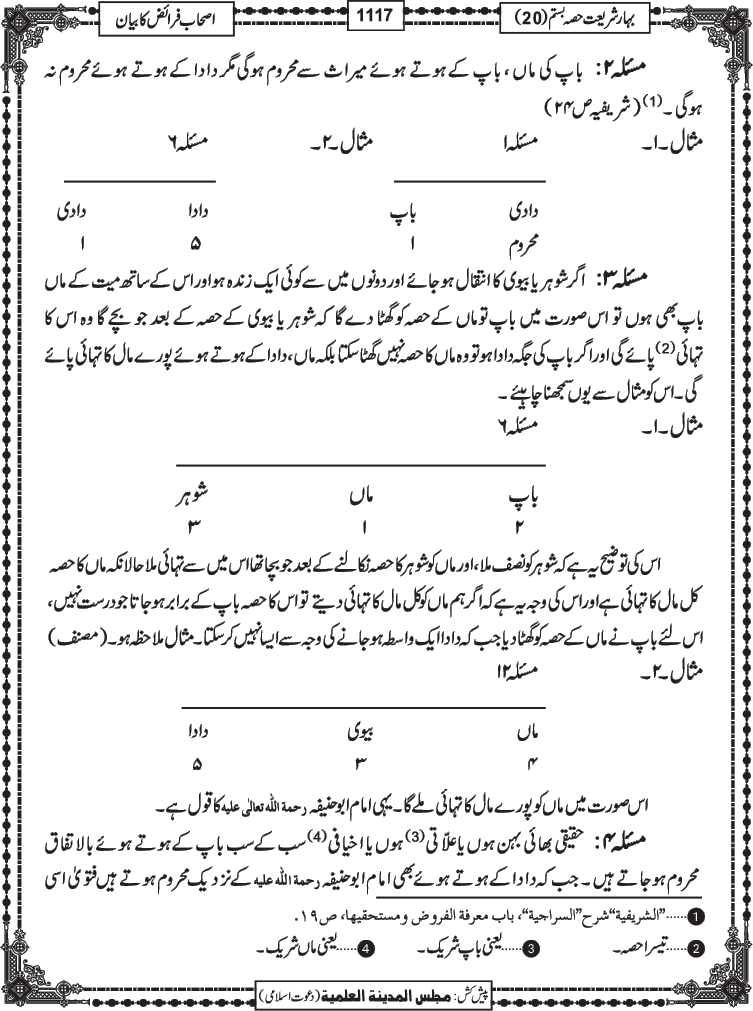 بہار شریعت حصہ بستم (20) 1117 اصحاب فرائض کا بیان
مسئلہ ۲: باپ کی ماں، باپ کے ہوتے ہوئے میراث سے محروم ہوگی مگر دادا کے ہوتے ہوئے محروم نہ
ہوگی۔(1) (شریفیہ ص۲۴)
مثال۔۱۔ مسئلہ۱ مثال۔۲۔ مسئلہ۶
دادی باپ دادا دادی
محروم ۱ ۵ ۱
مسئلہ ۳: اگر شوہر یا بیوی کا انتقال ہو جائے اور دونوں میں سے کوئی ایک زندہ ہو اور اس کے ساتھ میت کے ماں
باپ بھی ہوں تو اس صورت میں باپ تو ماں کے حصہ کو گھٹا دے گا کہ شوہر یا بیوی کے حصہ کے بعد جو بچے گا وہ اس کا
تہائی(2) پائے گی اور اگر باپ کی جگہ دادا ہو تو وہ ماں کا حصہ نہیں گھٹا سکتا بلکہ ماں، دادا کے ہوتے ہوئے پورے مال کا تہائی پائے
گی۔ اس کو مثال سے یوں سمجھنا چاہیئے۔
مثال۔۱۔ مسئلہ۶
باپ ماں شوہر
۲ ۱ ۳
اس کی توضیح یہ ہے کہ شوہر کو نصف ملا، اور ماں کو شوہر کا حصہ نکالنے کے بعد جو بچا تھا اس میں سے تہائی ملا حالانکہ ماں کا حصہ
کل مال کا تہائی ہے اور اس کی وجہ یہ ہے کہ اگر ہم ماں کو کل مال کا تہائی دیتے تو اس کا حصہ باپ کے برابر ہو جاتا جو درست نہیں،
اس لئے باپ نے ماں کے حصہ کو گھٹا دیا جب کہ دادا ایک واسطہ ہو جانے کی وجہ سے ایسا نہیں کر سکتا۔ مثال ملاحظہ ہو۔ (مصنف)
مثال۔۲۔ مسئلہ۱۲
ماں بیوی دادا
۴ ۳ ۵
اس صورت میں ماں کو پورے مال کا تہائی ملے گا۔ یہی امام ابو حنیفہ رحمة الله تعالی علیه کا قول ہے۔
مسئلہ ۴: حقیقی بھائی بہن ہوں یا علّاتی(3) ہوں یا اخیافی(4) سب کے سب باپ کے ہوتے ہوئے بالاتفاق
محروم ہو جاتے ہیں۔ جب کہ دادا کے ہوتے ہوئے بھی امام ابو حنیفہ رحمة الله علیه کے نزدیک محروم ہوتے ہیں فتویٰ اسی
1 ......"الشریفیة" شرح "السراجیة"، باب معرفة الفروض ومستحقیها، ص۱۹.
2 ......تیسرا حصہ۔ 3 ......یعنی باپ شریک۔ 4 ......یعنی ماں شریک۔
پیش کش: مجلس المدینة العلمیة (دعوت اسلامی)